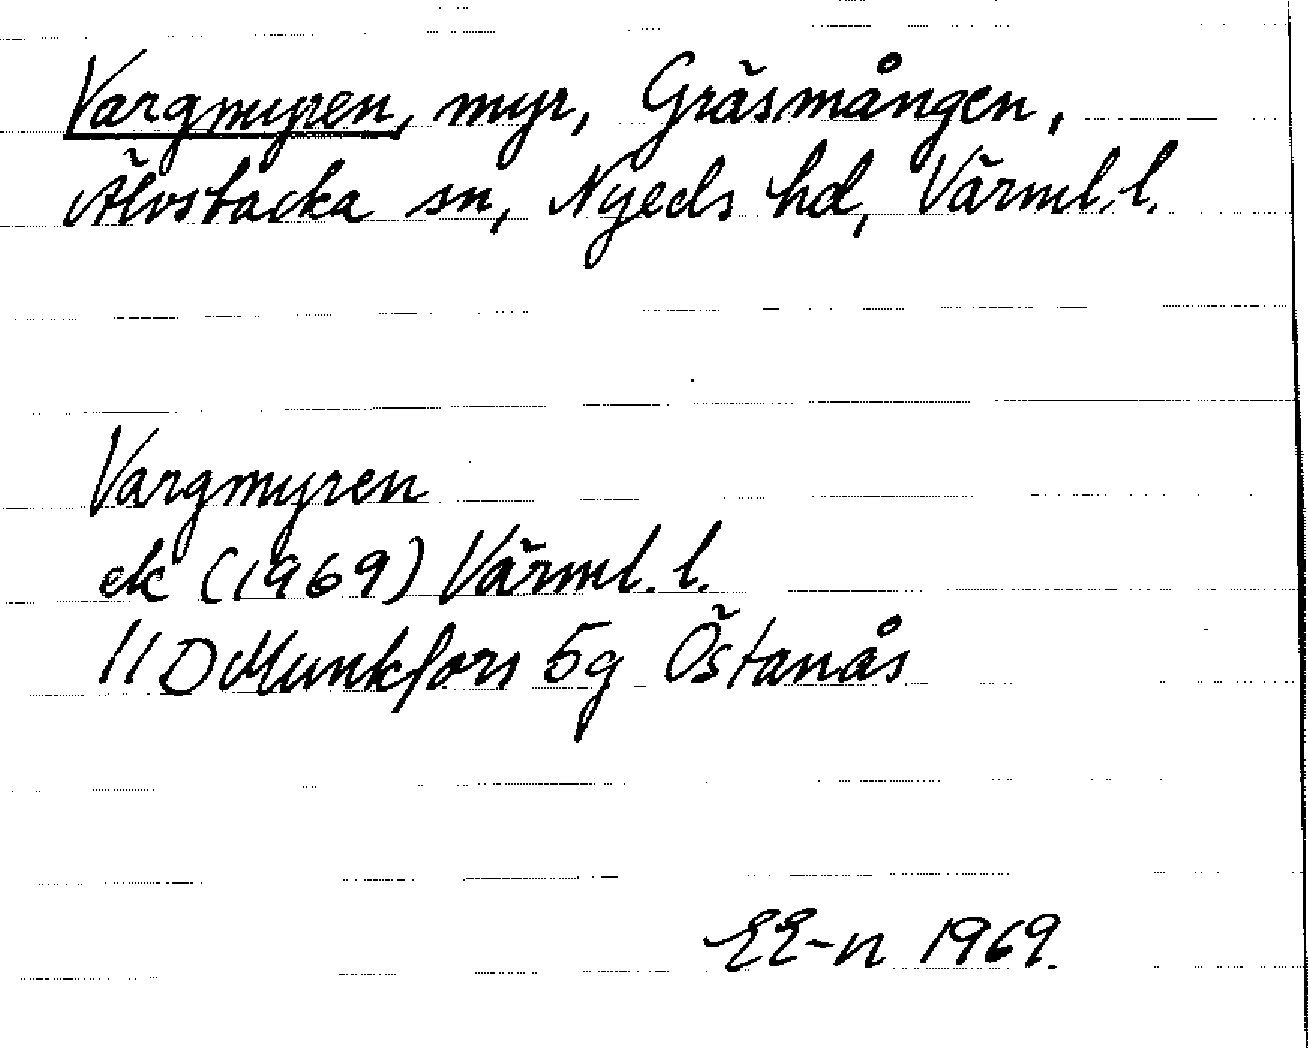 Vargmyren, myr, Gräsmången,
Älvsbacka sn, Nyeds hd, Värml. l.
Vargmyren
ek (1969) Värml. l.
11D Munkfors 5g Östanås
EE-n 1969.